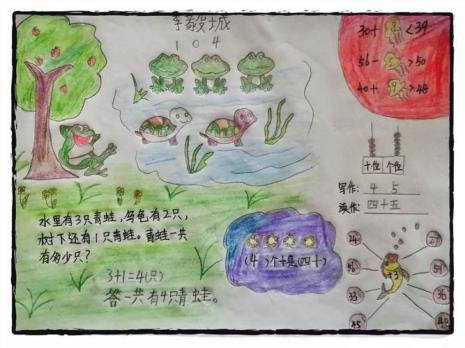 李毅城
104
30+ <39
56- >50
40+ >48
十位 个位
写作: 4 5
读作: 四十五
水里有3只青蛙,岛龟有2只,
树下还有1只青蛙。青蛙一共
有多少只?
3+1=4(只)
答一共有4只青蛙。
(4)个十是(四十)
24
27
+3
51
33
36
45